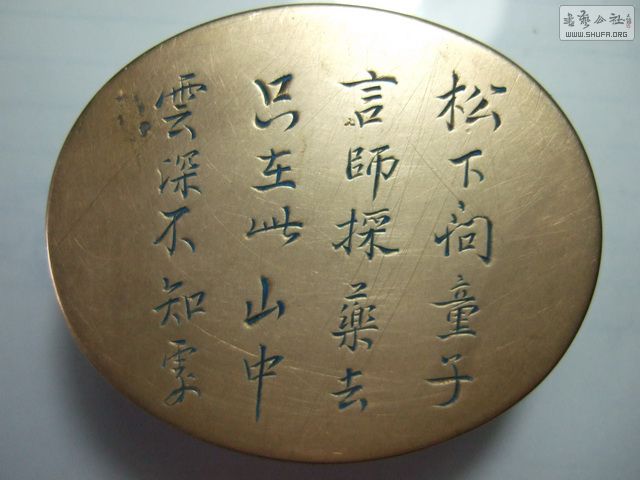 松下问童子
言師採藥去
只在此山中
雲深不知處
书艺公社
WWW.SHUFA.ORG